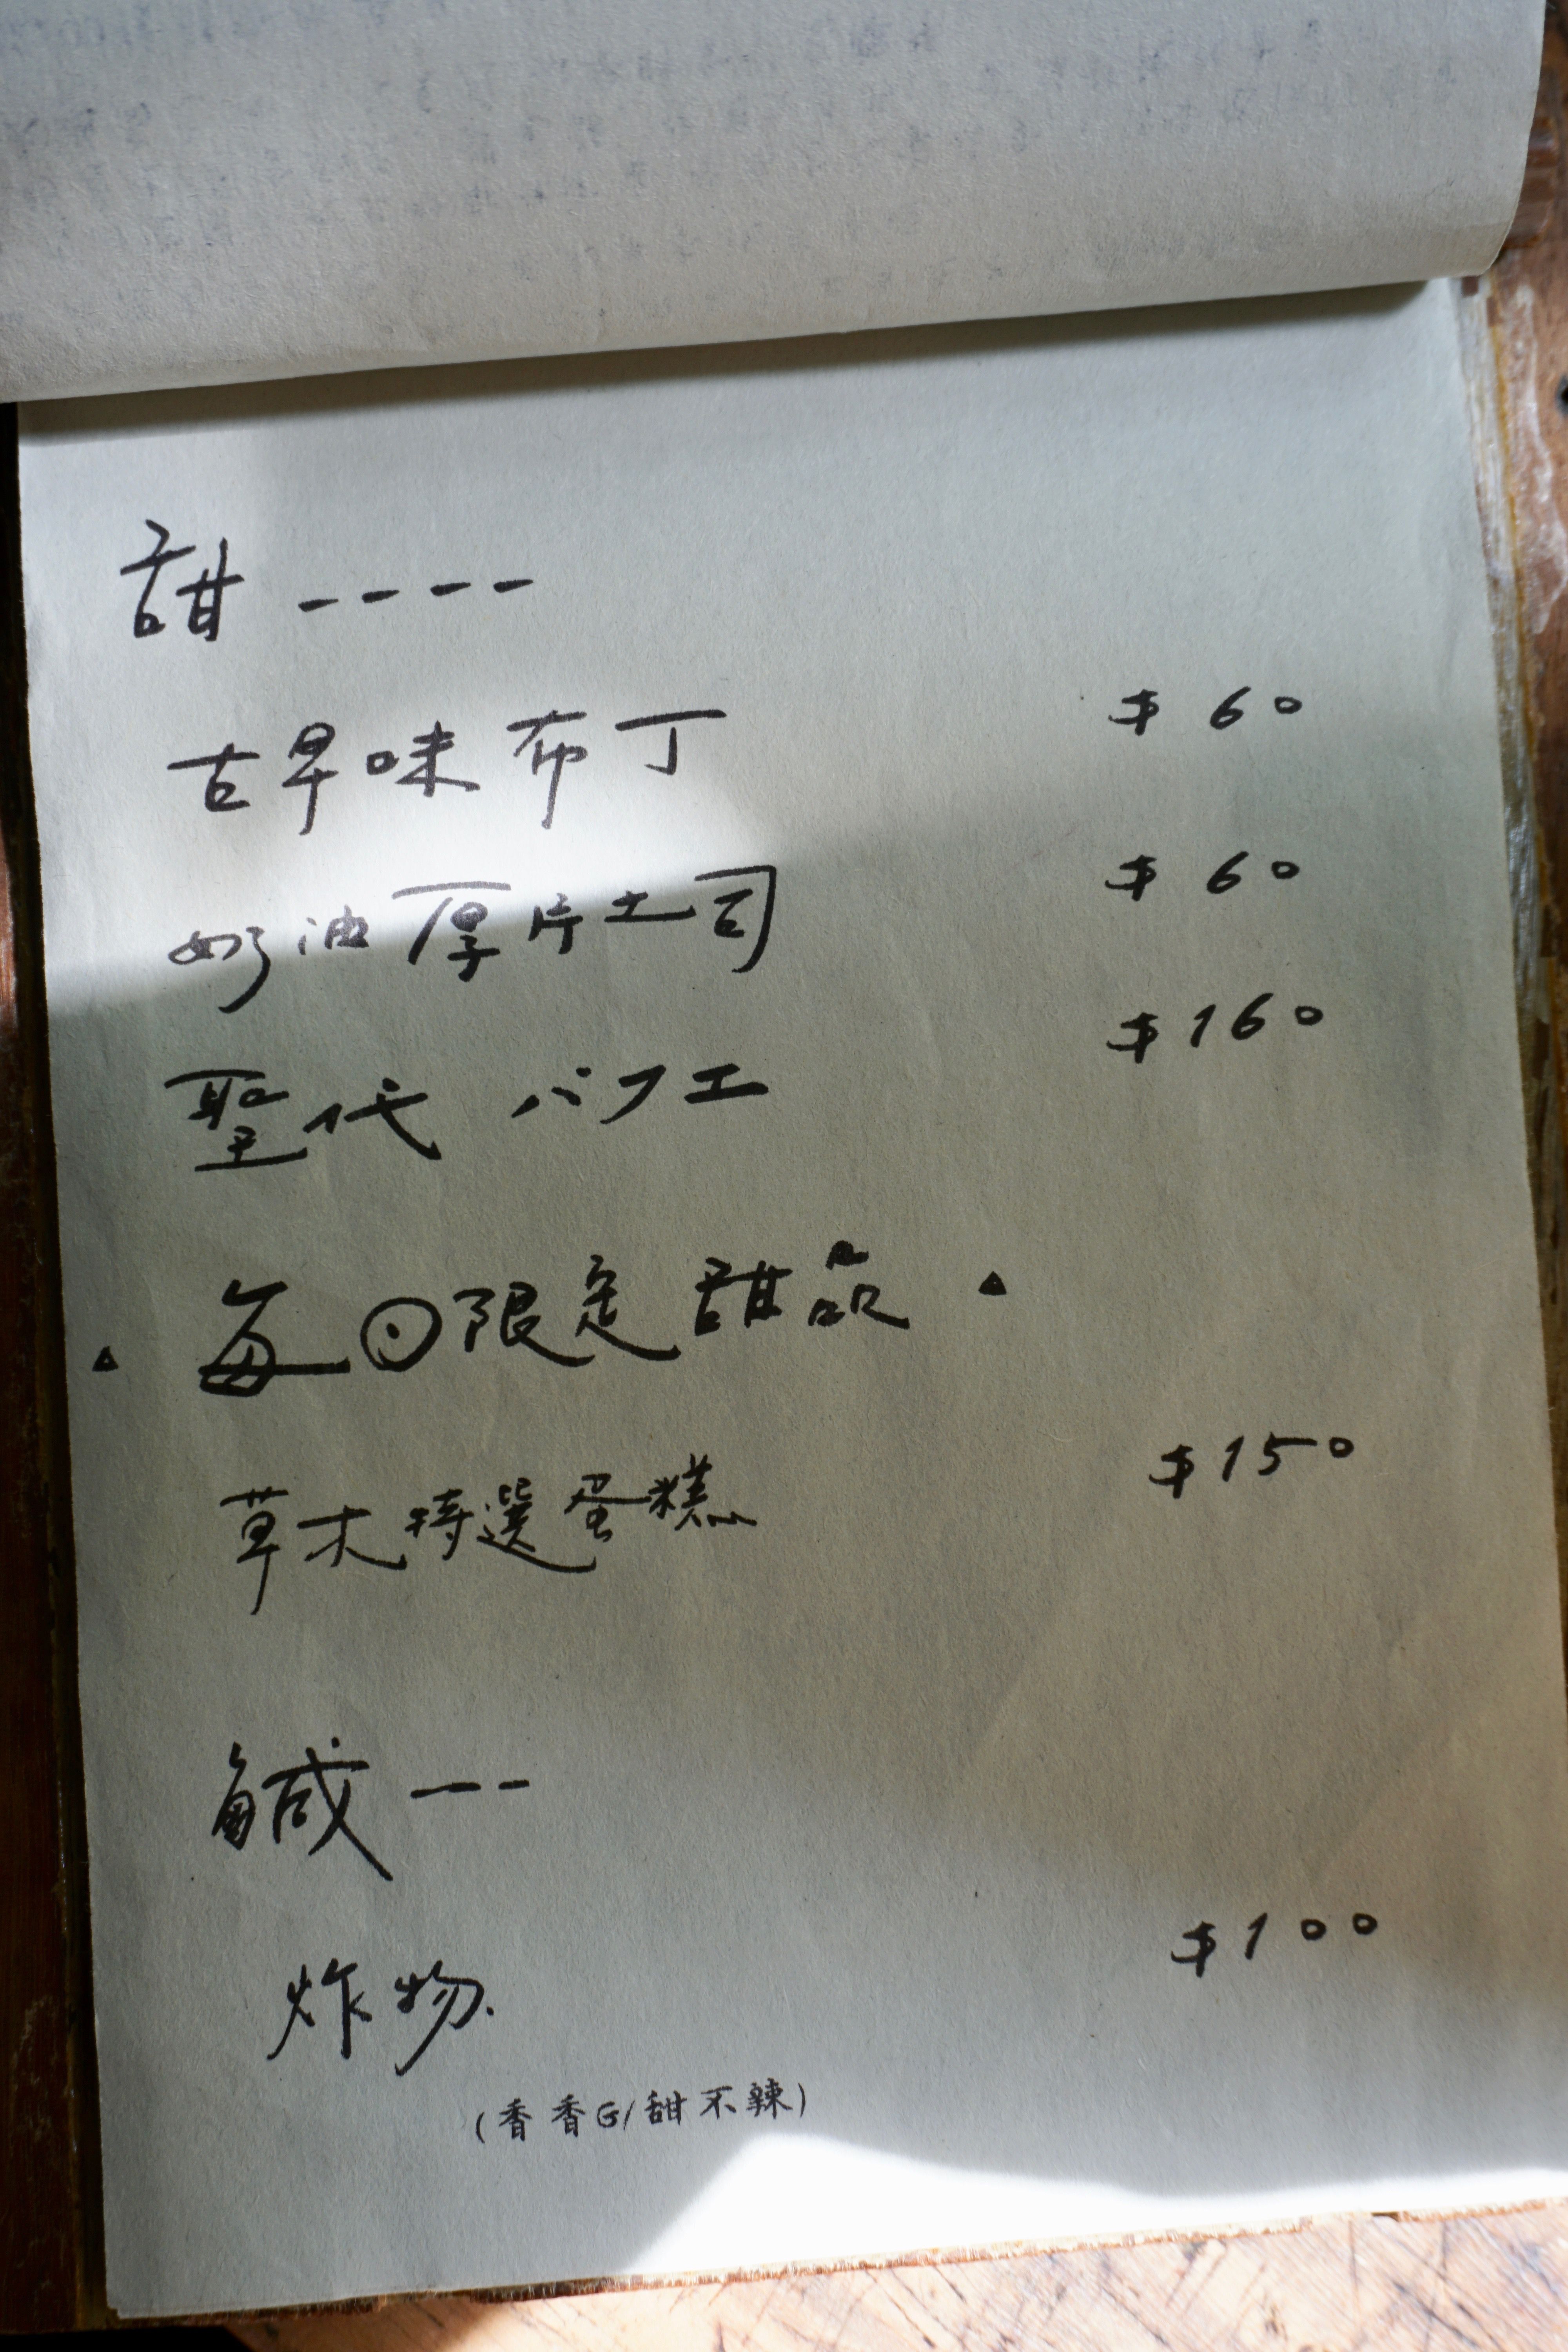 甜----
古早味布丁 $60
奶油厚片土司 $60
聖代 パフエ $160
▲ 每日限定甜品 ▲
草木特選蛋糕 $150
鹹---
炸物. $100
(香香G/甜不辣)